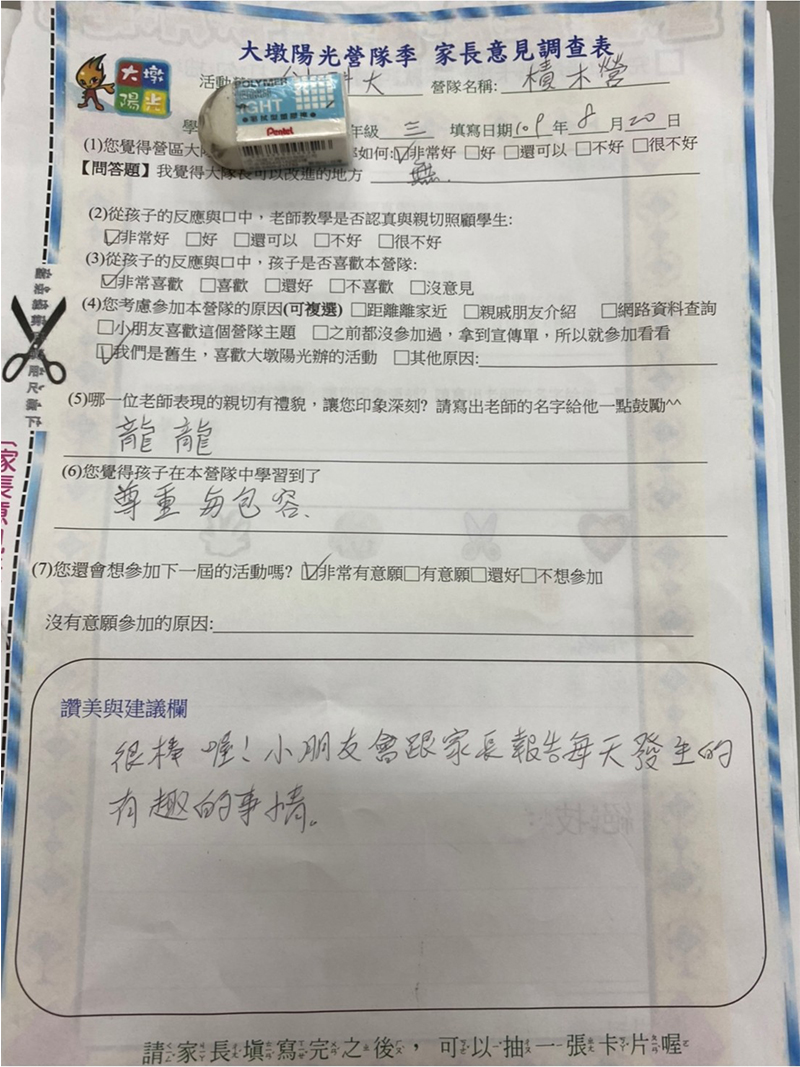 大墩陽光營隊季 家長意見調查表
大墩
陽光
活動
大
營隊名稱: 積木營
POLYMER
IGHT
Pentel
學
年級 三 填寫日期109年 8 月 20 日
(1)您覺得營區大
如何:☑非常好 □好 □還可以 □不好 □很不好
【問答題】我覺得大隊長可以改進的地方 無.
(2)從孩子的反應與口中，老師教學是否認真與親切照顧學生:
☑非常好 □好 □還可以 □不好 □很不好
(3)從孩子的反應與口中，孩子是否喜歡本營隊:
☑非常喜歡 □喜歡 □還好 □不喜歡 □沒意見
(4)您考慮參加本營隊的原因(可複選) □距離離家近 □親戚朋友介紹 □網路資料查詢
□小朋友喜歡這個營隊主題 □之前都沒參加過，拿到宣傳單，所以就參加看看
☑我們是舊生，喜歡大墩陽光辦的活動 □其他原因:
(5)哪一位老師表現的親切有禮貌，讓您印象深刻? 請寫出老師的名字給他一點鼓勵^^
龍龍
(6)您覺得孩子在本營隊中學習到了
尊重与包容.
(7)您還會想參加下一屆的活動嗎? ☑非常有意願□有意願□還好□不想參加
沒有意願參加的原因:
讚美與建議欄
很棒喔!小朋友會跟家長報告每天發生的
有趣的事情。
請家長填寫完之後，可以抽一張卡片喔